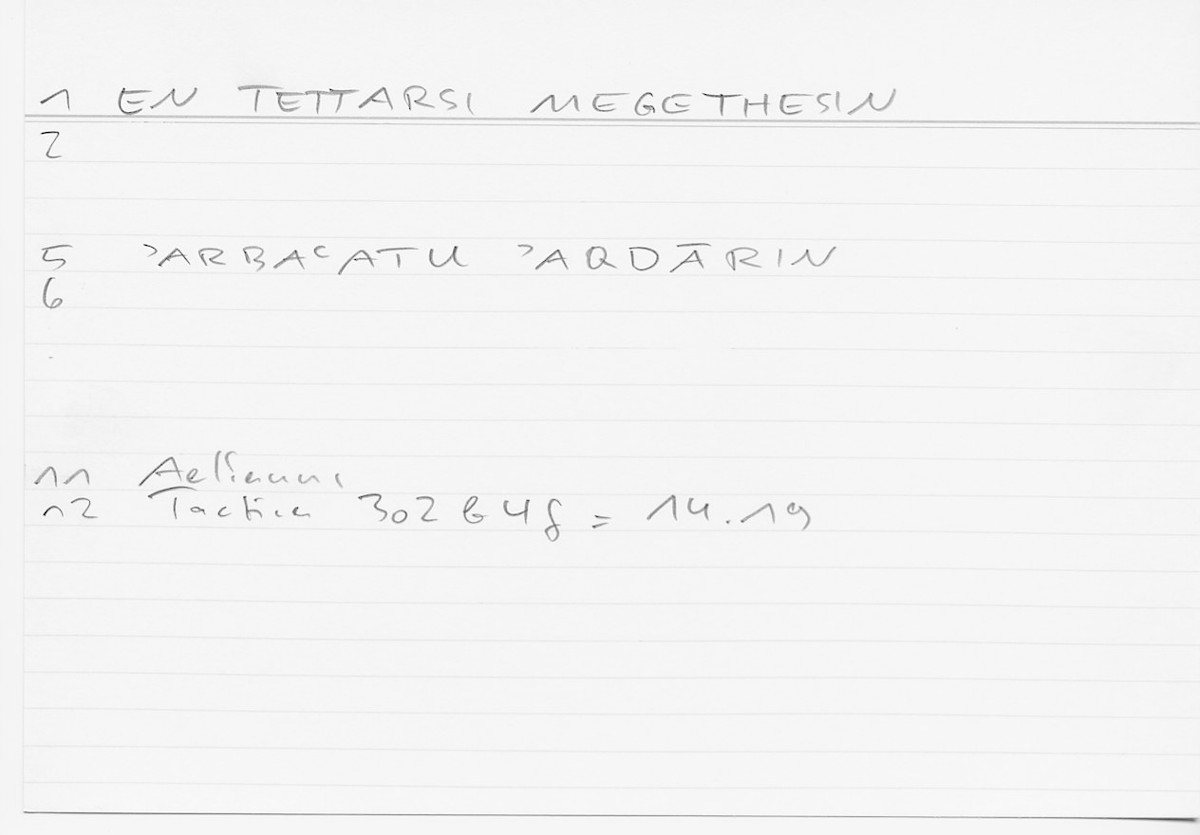 1 EN TETTARSI MEGETHESIN
2
5 ʾARBAʿATU ʾAQDĀRIN
6
11 Aelianus
12 Tactica 302 b 48 = 14.19